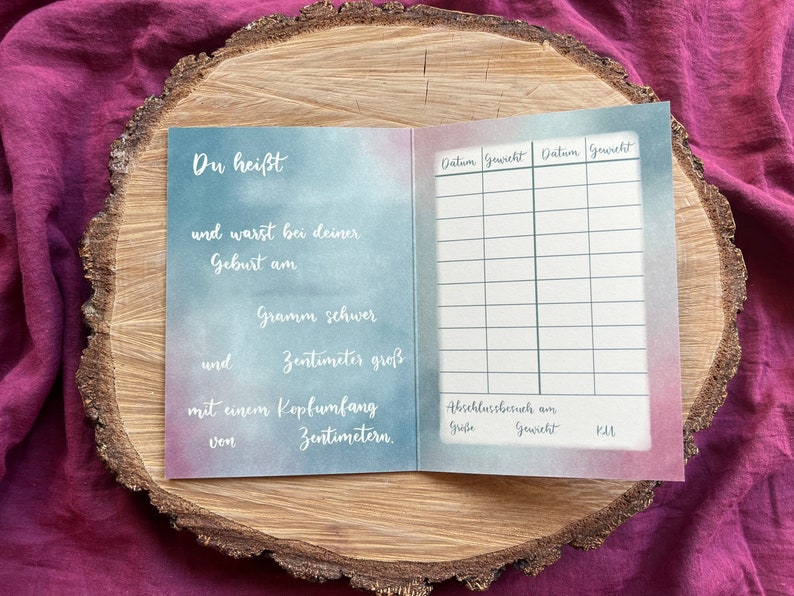 Du heißt
und warst bei deiner
Geburt am
Gramm schwer
und Zentimeter groß
mit einem Kopfumfang
von Zentimetern.
Datum Gewicht Datum Gewicht
Abschlussbesuch am
Größe Gewicht KU